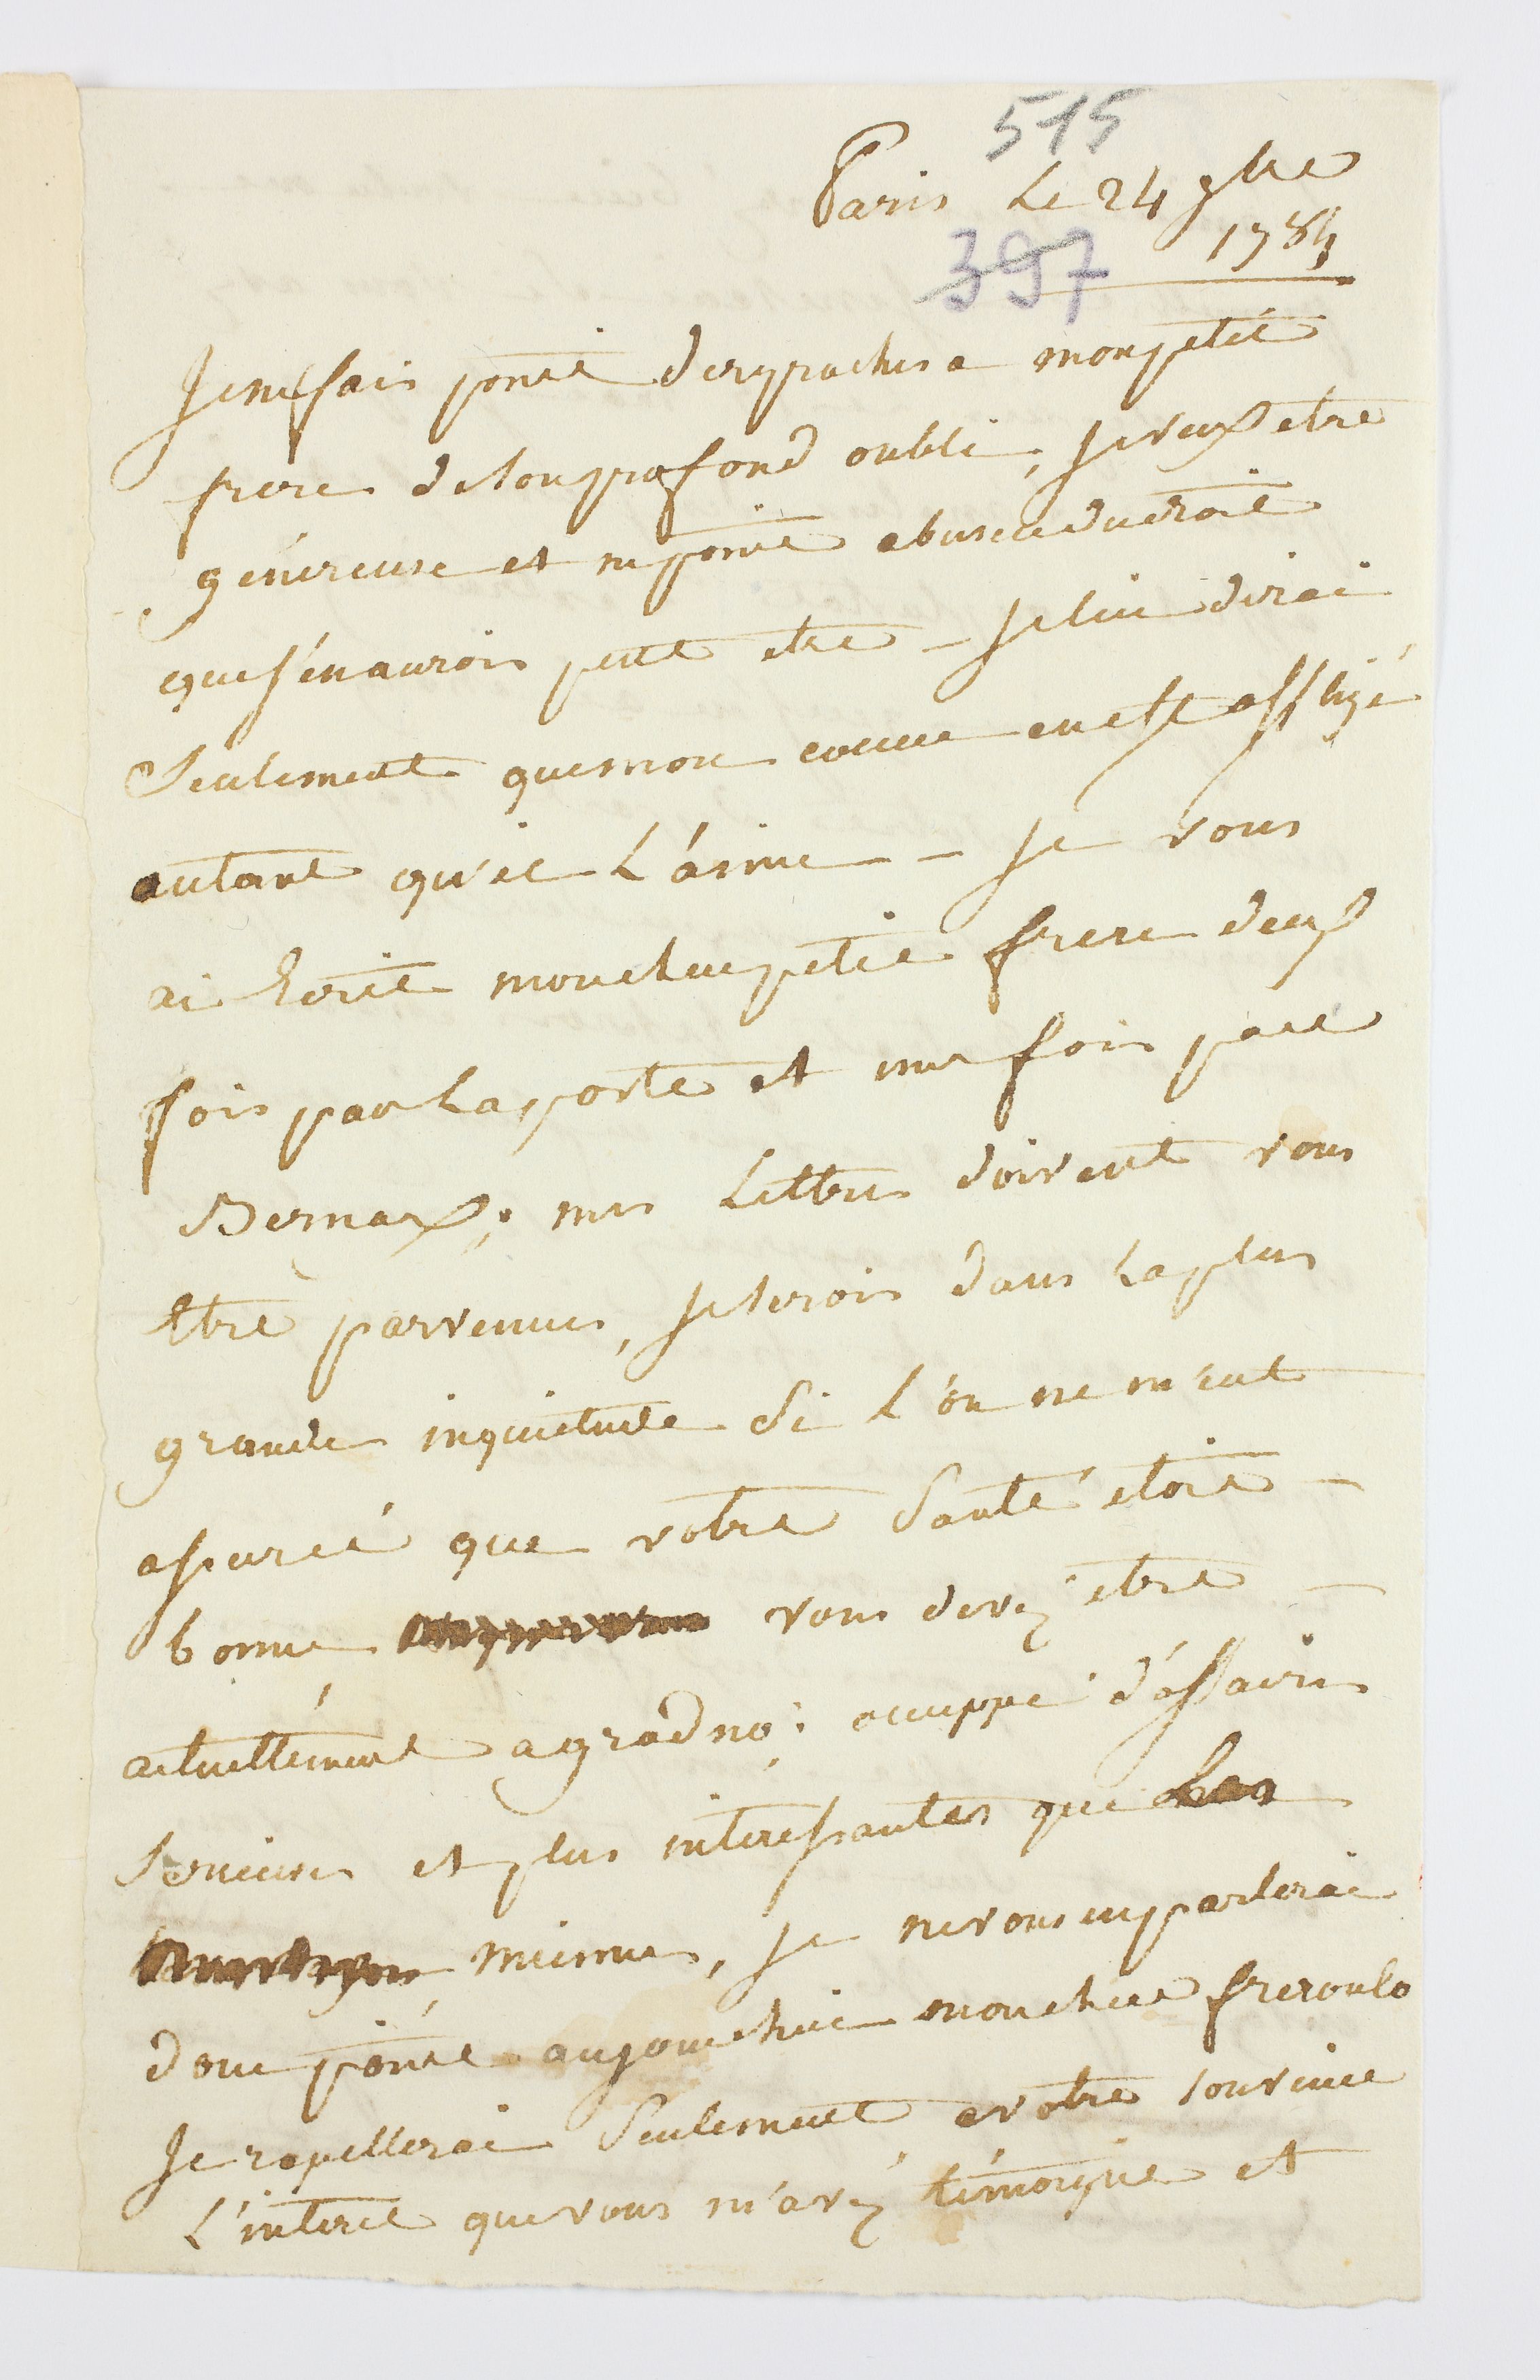 515
Paris Le 24 9bre
1784
397
Je ne fais point de reproches a mon petit
frere de son profond oubli, je veux etre
généreuse et ne point abuser du droit
que j'en aurois peut etre – je lui dirai
Seulement que mon coeur en est affligé
autant qu'il L'aime – je vous
ai Ecrit mon cher petit frere deux
fois par La poste et une fois par
Bernax; mes Lettres doivent vous
Etre parvenues, je serois dans La plus
grande inquietude Si L'on ne m'eut
assureé que votre Santé etoit –
bonne vous devez etre –
actuellement a grodno: occuppé d'affaires
Serieuses et plus interessantes que Les
miennes, je ne vous en parlerai
donc point aujourdhui mon cher frere
Je rapellerai Seulement a votre souvenir
L'interet que vous m'avez témoigné et